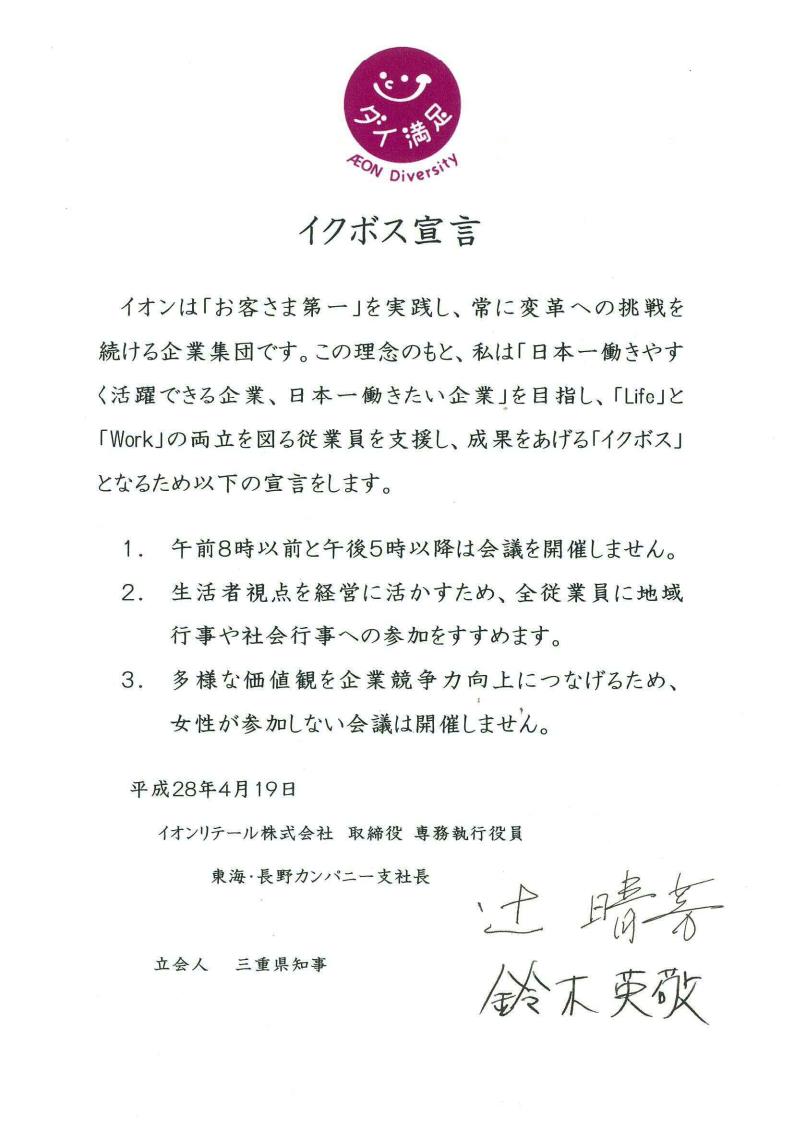 ダイ満足
ÆON Diversity
イクボス宣言
イオンは「お客さま第一」を実践し、常に変革への挑戦を
続ける企業集団です。この理念のもと、私は「日本一働きやす
く活躍できる企業、日本一働きたい企業」を目指し、「Life」と
「Work」の両立を図る従業員を支援し、成果をあげる「イクボス」
となるため以下の宣言をします。
1. 午前8時以前と午後5時以降は会議を開催しません。
2. 生活者視点を経営に活かすため、全従業員に地域
行事や社会行事への参加をすすめます。
3. 多様な価値観を企業競争力向上につなげるため、
女性が参加しない会議は開催しません。
平成28年4月19日
イオンリテール株式会社 取締役 専務執行役員
東海・長野カンパニー支社長
辻 晴芳
立会人 三重県知事
鈴木英敬